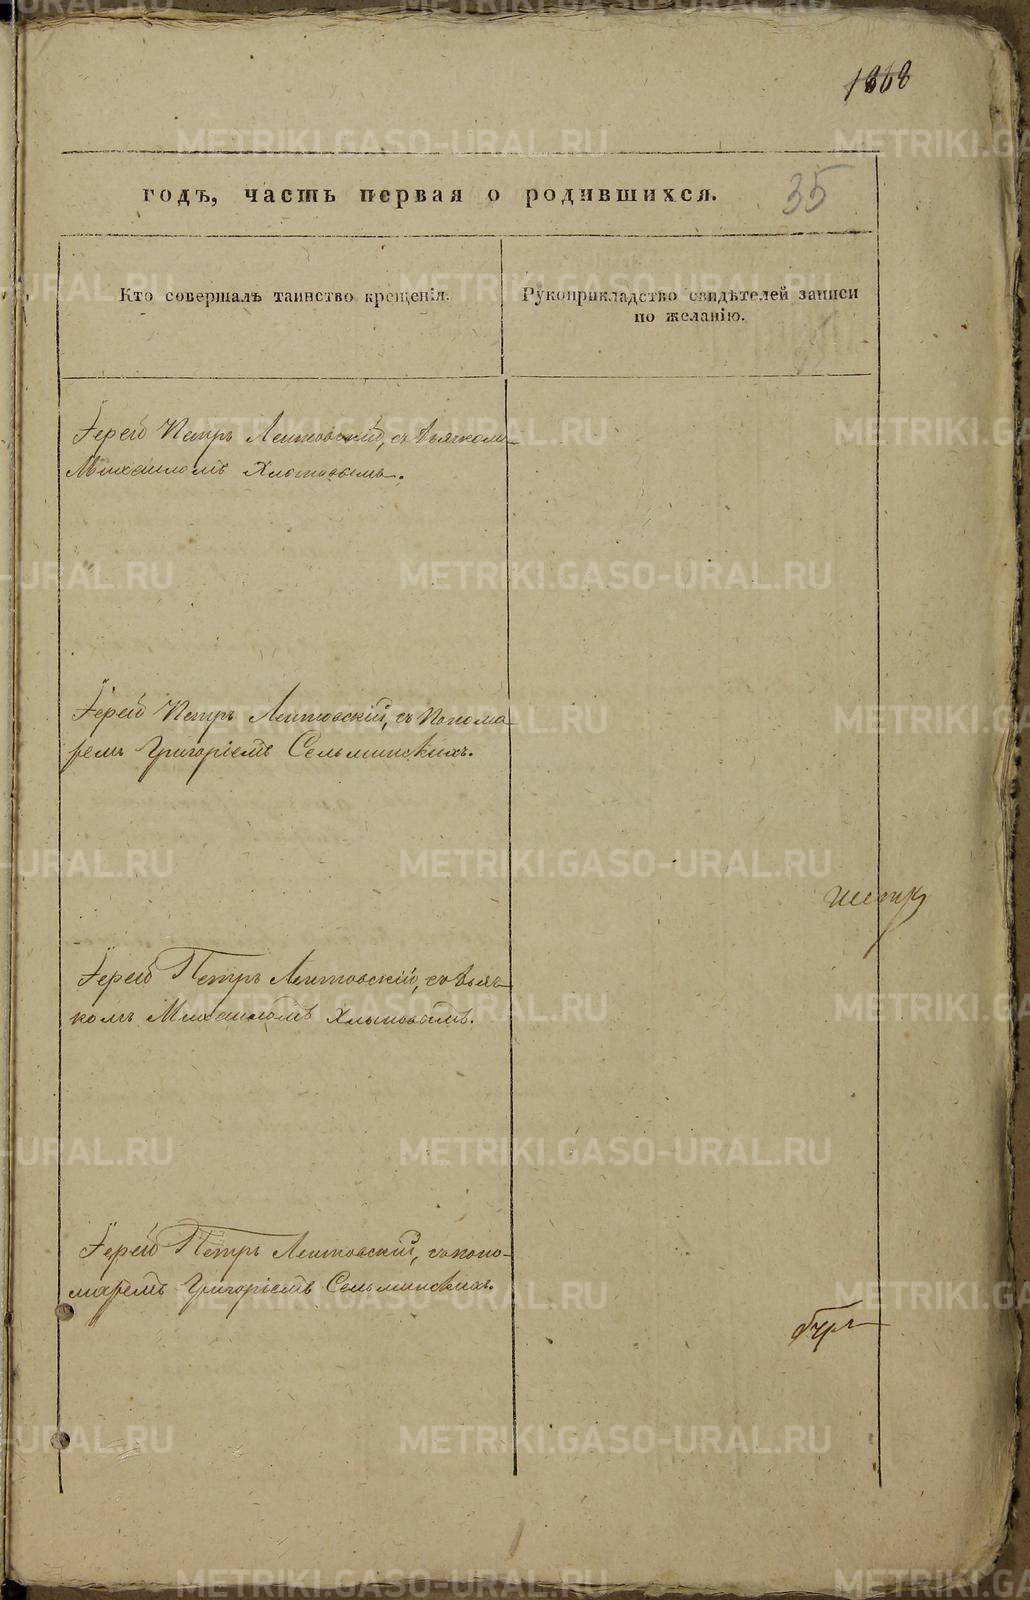 1868
годъ, часть первая о родившихся.
35
Кто совершалъ таинство крещенія.
Рукоприкладство свидѣтелей записи
по желанію.
Іерей Петръ Лентовскій, съ дьячкомъ
Михаиломъ Хлыновымъ.
Іерей Петръ Лентовскій, съ понома-
ремъ Григоріемъ Сельминскихъ.
Іерей Петръ Лентовскій, съ дьяч-
комъ Михаиломъ Хлыновымъ.
Іерей Петръ Лентовскій, съ поно-
маремъ Григоріемъ Сельминскихъ.
METRIKI.GASO-URAL.RU